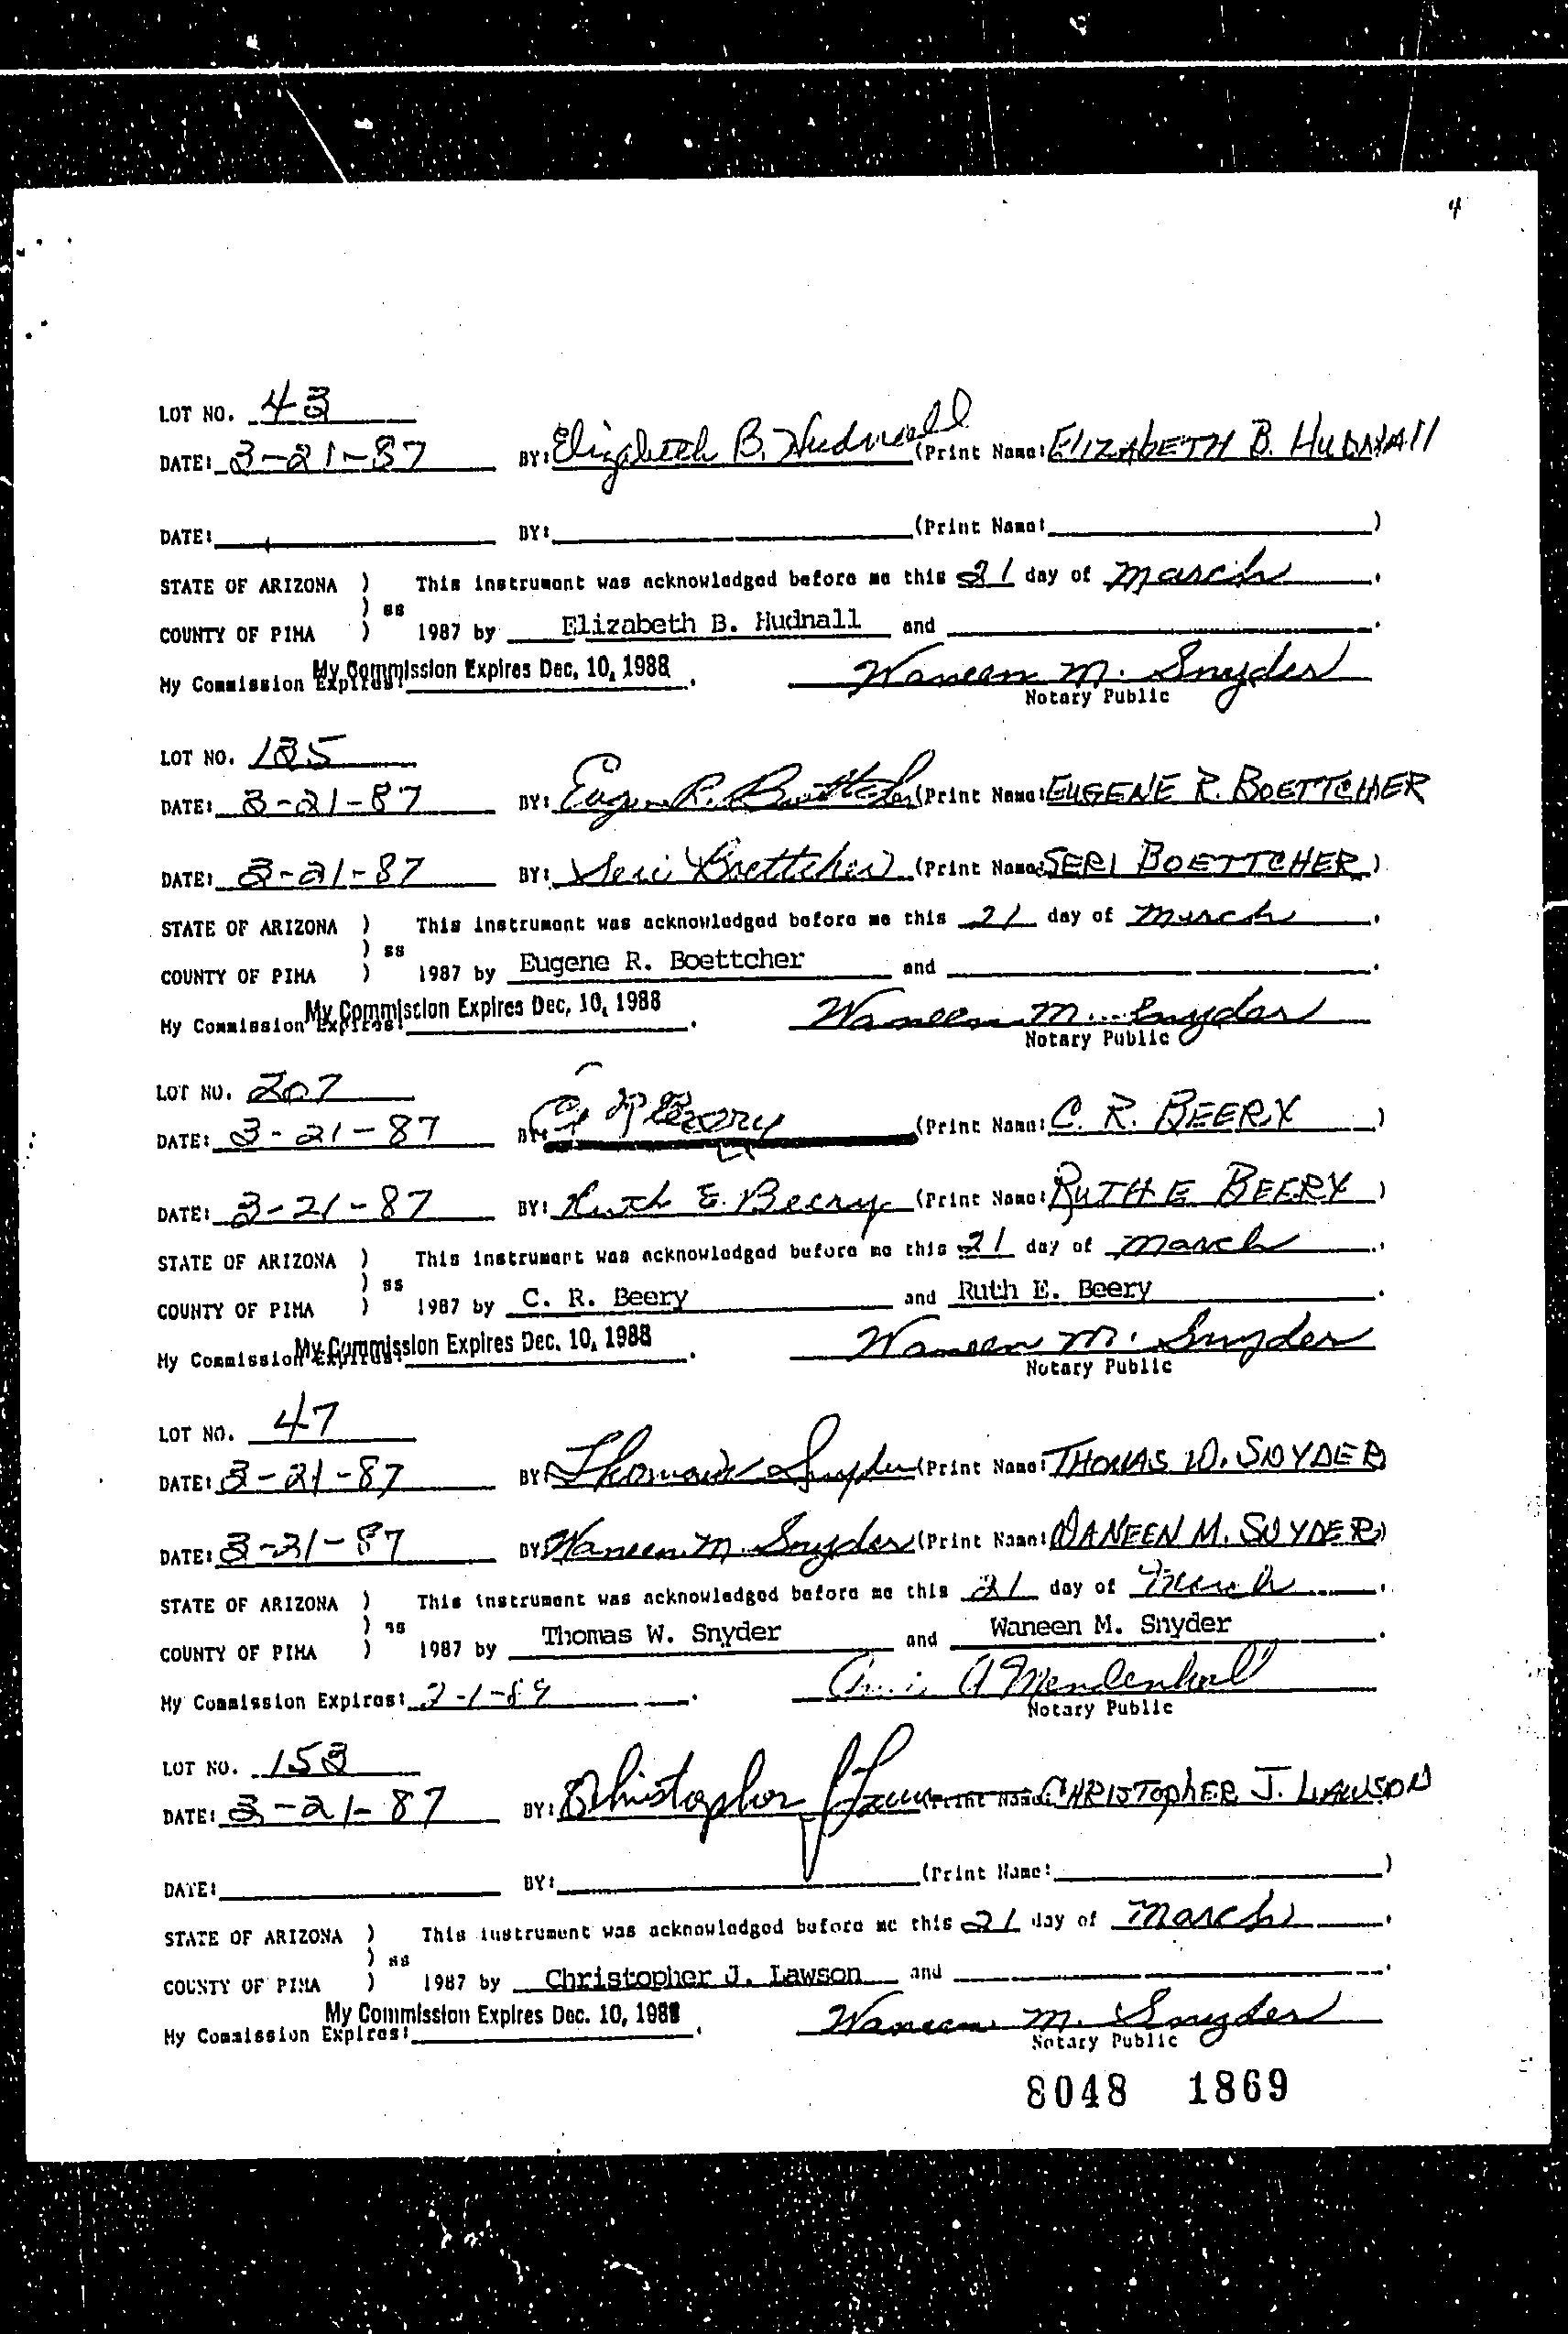 4
LOT NO. 43
DATE: 3-21-87 BY: Elizabeth B. Hudnall (Print Name: ELIZAbETH B. HUDNAll
DATE: BY: (Print Name: )
STATE OF ARIZONA ) This instrument was acknowledged before me this 21 day of March .
) ss
COUNTY OF PIMA ) 1987 by Elizabeth B. Hudnall and .
My Commission Expires: My Commission Expires Dec. 10, 1988 . Waneen M. Snyder
Notary Public
LOT NO.
DATE: 3-21-87 BY: Eugene R. Boettcher (Print Name: EUGENE R. BOETTCHER
DATE: 3-21-87 BY: Seri Boettcher (Print Name: SERI BOETTCHER )
STATE OF ARIZONA ) This instrument was acknowledged before me this 21 day of March .
) ss
COUNTY OF PIMA ) 1987 by Eugene R. Boettcher and .
My Commission Expires: My Commission Expires Dec. 10, 1988 . Waneen M. Snyder
Notary Public
LOT NO. 207
DATE: 3-21-87 BY: C R Beery (Print Name: C. R. BEERY )
DATE: 3-21-87 BY: Ruth E. Beery (Print Name: RUTH E BEERY )
STATE OF ARIZONA ) This instrument was acknowledged before me this 21 day of March .
) ss
COUNTY OF PIMA ) 1987 by C. R. Beery and Ruth E. Beery .
My Commission Expires: My Commission Expires Dec. 10, 1988 . Waneen M. Snyder
Notary Public
LOT NO. 47
DATE: 3-21-87 BY: Thomas W Snyder (Print Name: THOMAS W. SNYDER
DATE: 3-21-87 BY: Waneen M. Snyder (Print Name: WANEEN M. SNYDER)
STATE OF ARIZONA ) This instrument was acknowledged before me this 21 day of March .
) ss
COUNTY OF PIMA ) 1987 by Thomas W. Snyder and Waneen M. Snyder .
My Commission Expires: 2-1-89 . A Mendenhall
Notary Public
LOT NO. 153
DATE: 3-21-87 BY: Christopher J Lawson (Print Name: CHRISTOPhER J. LAWSON
DATE: BY: (Print Name: )
STATE OF ARIZONA ) This instrument was acknowledged before me this 21 day of March .
) ss
COUNTY OF PIMA ) 1987 by Christopher J. Lawson and .
My Commission Expires: My Commission Expires Dec. 10, 1988 . Waneen M. Snyder
Notary Public
8048 1869